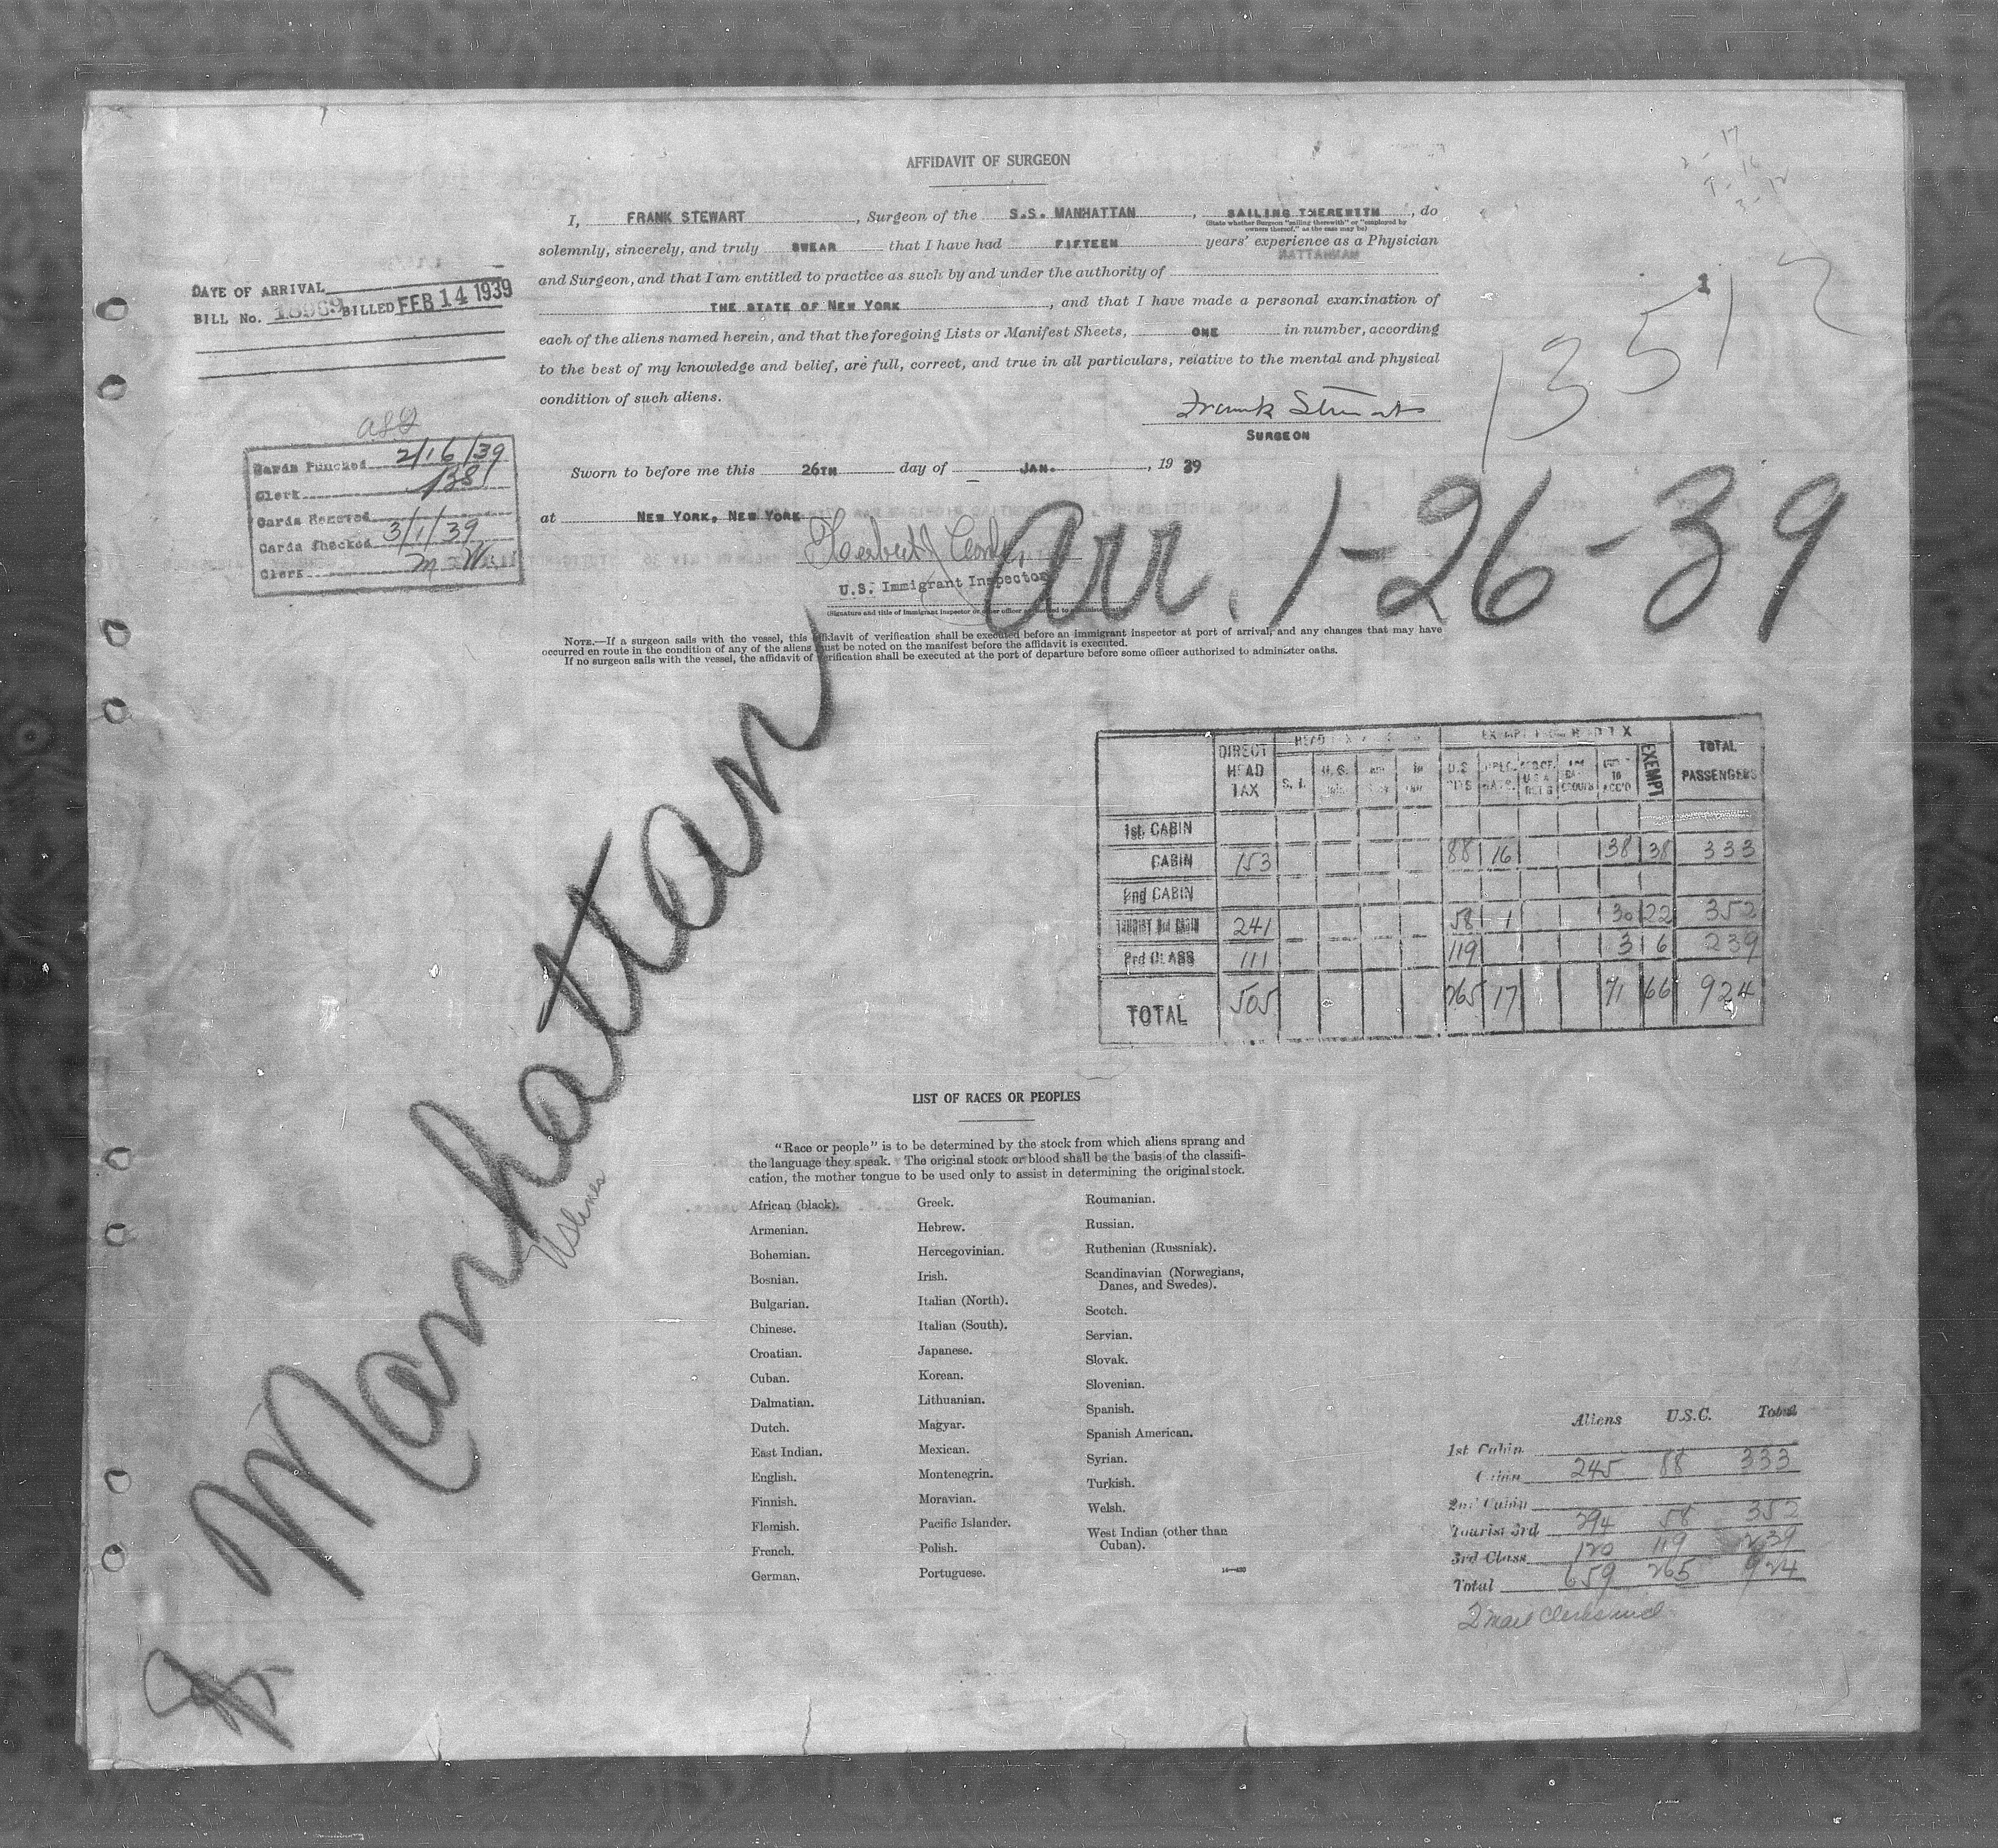 AFFIDAVIT OF SURGEON
I, FRANK STEWART, Surgeon of the S.S. MANHATTAN, SAILING THEREWITH, do
(State whether Surgeon "sailing therewith" or "employed by owners thereof," as the case may be)
solemnly, sincerely, and truly SWEAR that I have had FIFTEEN years' experience as a Physician
and Surgeon, and that I am entitled to practice as such by and under the authority of
THE STATE OF NEW YORK, and that I have made a personal examination of
each of the aliens named herein, and that the foregoing Lists or Manifest Sheets, ONE in number, according
to the best of my knowledge and belief, are full, correct, and true in all particulars, relative to the mental and physical
condition of such aliens.
Frank Stewart
SURGEON
Sworn to before me this 26TH day of JAN., 19 39
at NEW YORK, NEW YORK
U.S. Immigrant Inspector
NOTE.—If a surgeon sails with the vessel, this affidavit of verification shall be executed before an immigrant inspector at port of arrival, and any changes that may have
occurred en route in the condition of any of the aliens must be noted on the manifest before the affidavit is executed.
If no surgeon sails with the vessel, the affidavit of verification shall be executed at the port of departure before some officer authorized to administer oaths.
DATE OF ARRIVAL
BILL No. BILLED FEB 14 1939
Cards Punched 2/16/39
Clerk 138
Cards Removed
Cards Checked 3/1/39
Clerk M. W.
1
13512
Arr. 1-26-39
Manhattan
US Lines
DIRECT HEAD TAX EXEMPT TOTAL PASSENGERS
1st CABIN
CABIN 153 88 16 38 38 333
2nd CABIN
TOURIST 3rd CABIN 241 58 1 30 22 352
3rd CLASS 111 119 3 6 239
TOTAL 505 265 17 71 66 924
LIST OF RACES OR PEOPLES
"Race or people" is to be determined by the stock from which aliens sprang and
the language they speak. The original stock or blood shall be the basis of the classifi-
cation, the mother tongue to be used only to assist in determining the original stock.
African (black).
Armenian.
Bohemian.
Bosnian.
Bulgarian.
Chinese.
Croatian.
Cuban.
Dalmatian.
Dutch.
East Indian.
English.
Finnish.
Flemish.
French.
German.
Greek.
Hebrew.
Hercegovinian.
Irish.
Italian (North).
Italian (South).
Japanese.
Korean.
Lithuanian.
Magyar.
Mexican.
Montenegrin.
Moravian.
Pacific Islander.
Polish.
Portuguese.
Roumanian.
Russian.
Ruthenian (Russniak).
Scandinavian (Norwegians,
Danes, and Swedes).
Scotch.
Servian.
Slovak.
Slovenian.
Spanish.
Spanish American.
Syrian.
Turkish.
Welsh.
West Indian (other than
Cuban).
Aliens U.S.C. Total
1st Cabin
Cabin 245 88 333
2nd Cabin
Tourist 3rd 294 58 352
3rd Class 120 119 239
Total 659 265 924
2 mail clerks incl